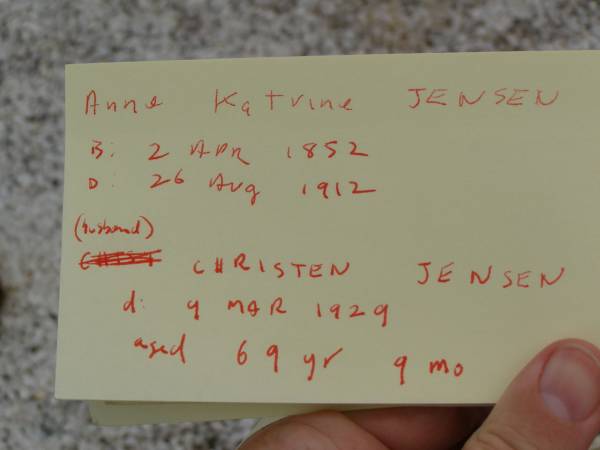 Anne Katrine JENSEN
B: 2 APR 1852
D: 26 Aug 1912
(husband)
CHRISTEN JENSEN
d: 9 MAR 1929
aged 69 yr 9 mo